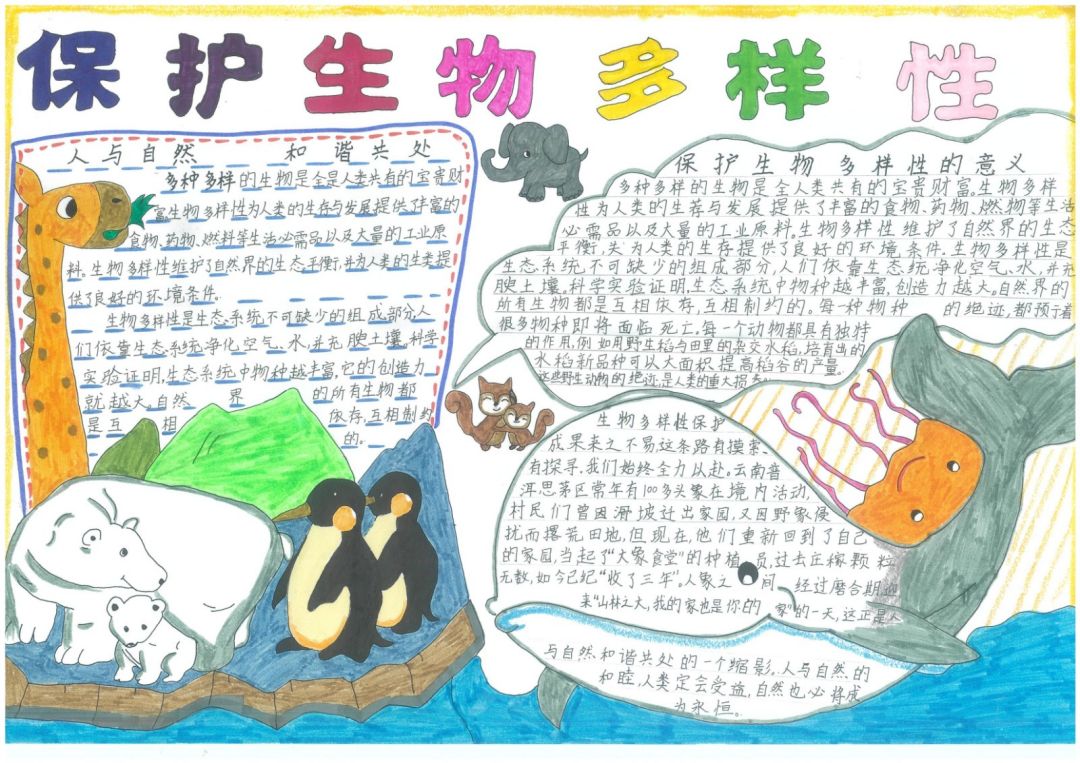 保护生物多样性
人与自然 和谐共处
多种多样的生物是全是人类共有的宝贵财
富生物多样性为人类的生存与发展提供了丰富的
食物、药物、燃料等生活必需品以及大量的工业原
料。生物多样性维护了自然界的生态平衡,并为人类的生类提
供了良好的环境条件。
生物多样性是生态系统不可缺少的组成部分,人
们依靠生态系统净化空气、水,并充腴土壤,科学
实验证明,生态系统中物种越丰富,它的创造力
就越大。自然 界 的所有生物都
是互 相 依存,互相制约
的。
保护生物多样性的意义
多种多样的生物是全人类共有的宝贵财富。生物多样
性为人类的生存与发展提供了丰富的食物、药物、燃物等生活
必需品以及大量的工业原料。生物多样性维护了自然界的生态
平衡,关为人类的生存提供了良好的环境条件.生物多样性是
生态系统不可缺少的组成部分,人们依靠生态统净化空气、水,并充
腴土壤.科学实验证明,生态系统中物种越丰富,创造力越大。自然界的
所有生物都是互相依存,互相制约的。每一种物种 的绝迹,都预讳着
很多物种即将面临死亡.每一个动物都具有独特
的作用,例如用野生稻与田里的杂交水稻,培育出的
水稻新品种可以大面积提高稻谷的产量.
这些野生动物的绝迹是人类的重大损失。
生物多样性保护
成果来之不易,这条路有摸索、
有探寻.我们始终全力以赴。云南普
洱思茅区常年有100多头象在境内活动,
村民们曾因滑坡迁出家园,又因野象侵
扰而撂荒田地,但现在,他们重新回到了自己
的家园,当起了“大象食堂”的种植员,过去庄稼颗粒
无数,如今已纪“收了三年”。人象之间 经过磨合期迎
来“山林之大,我的家也是你的家”的一天,这正是人
与自然和谐共处的一个缩影,人与自然的
和睦,人类定会受益,自然也必将成
为永恒。